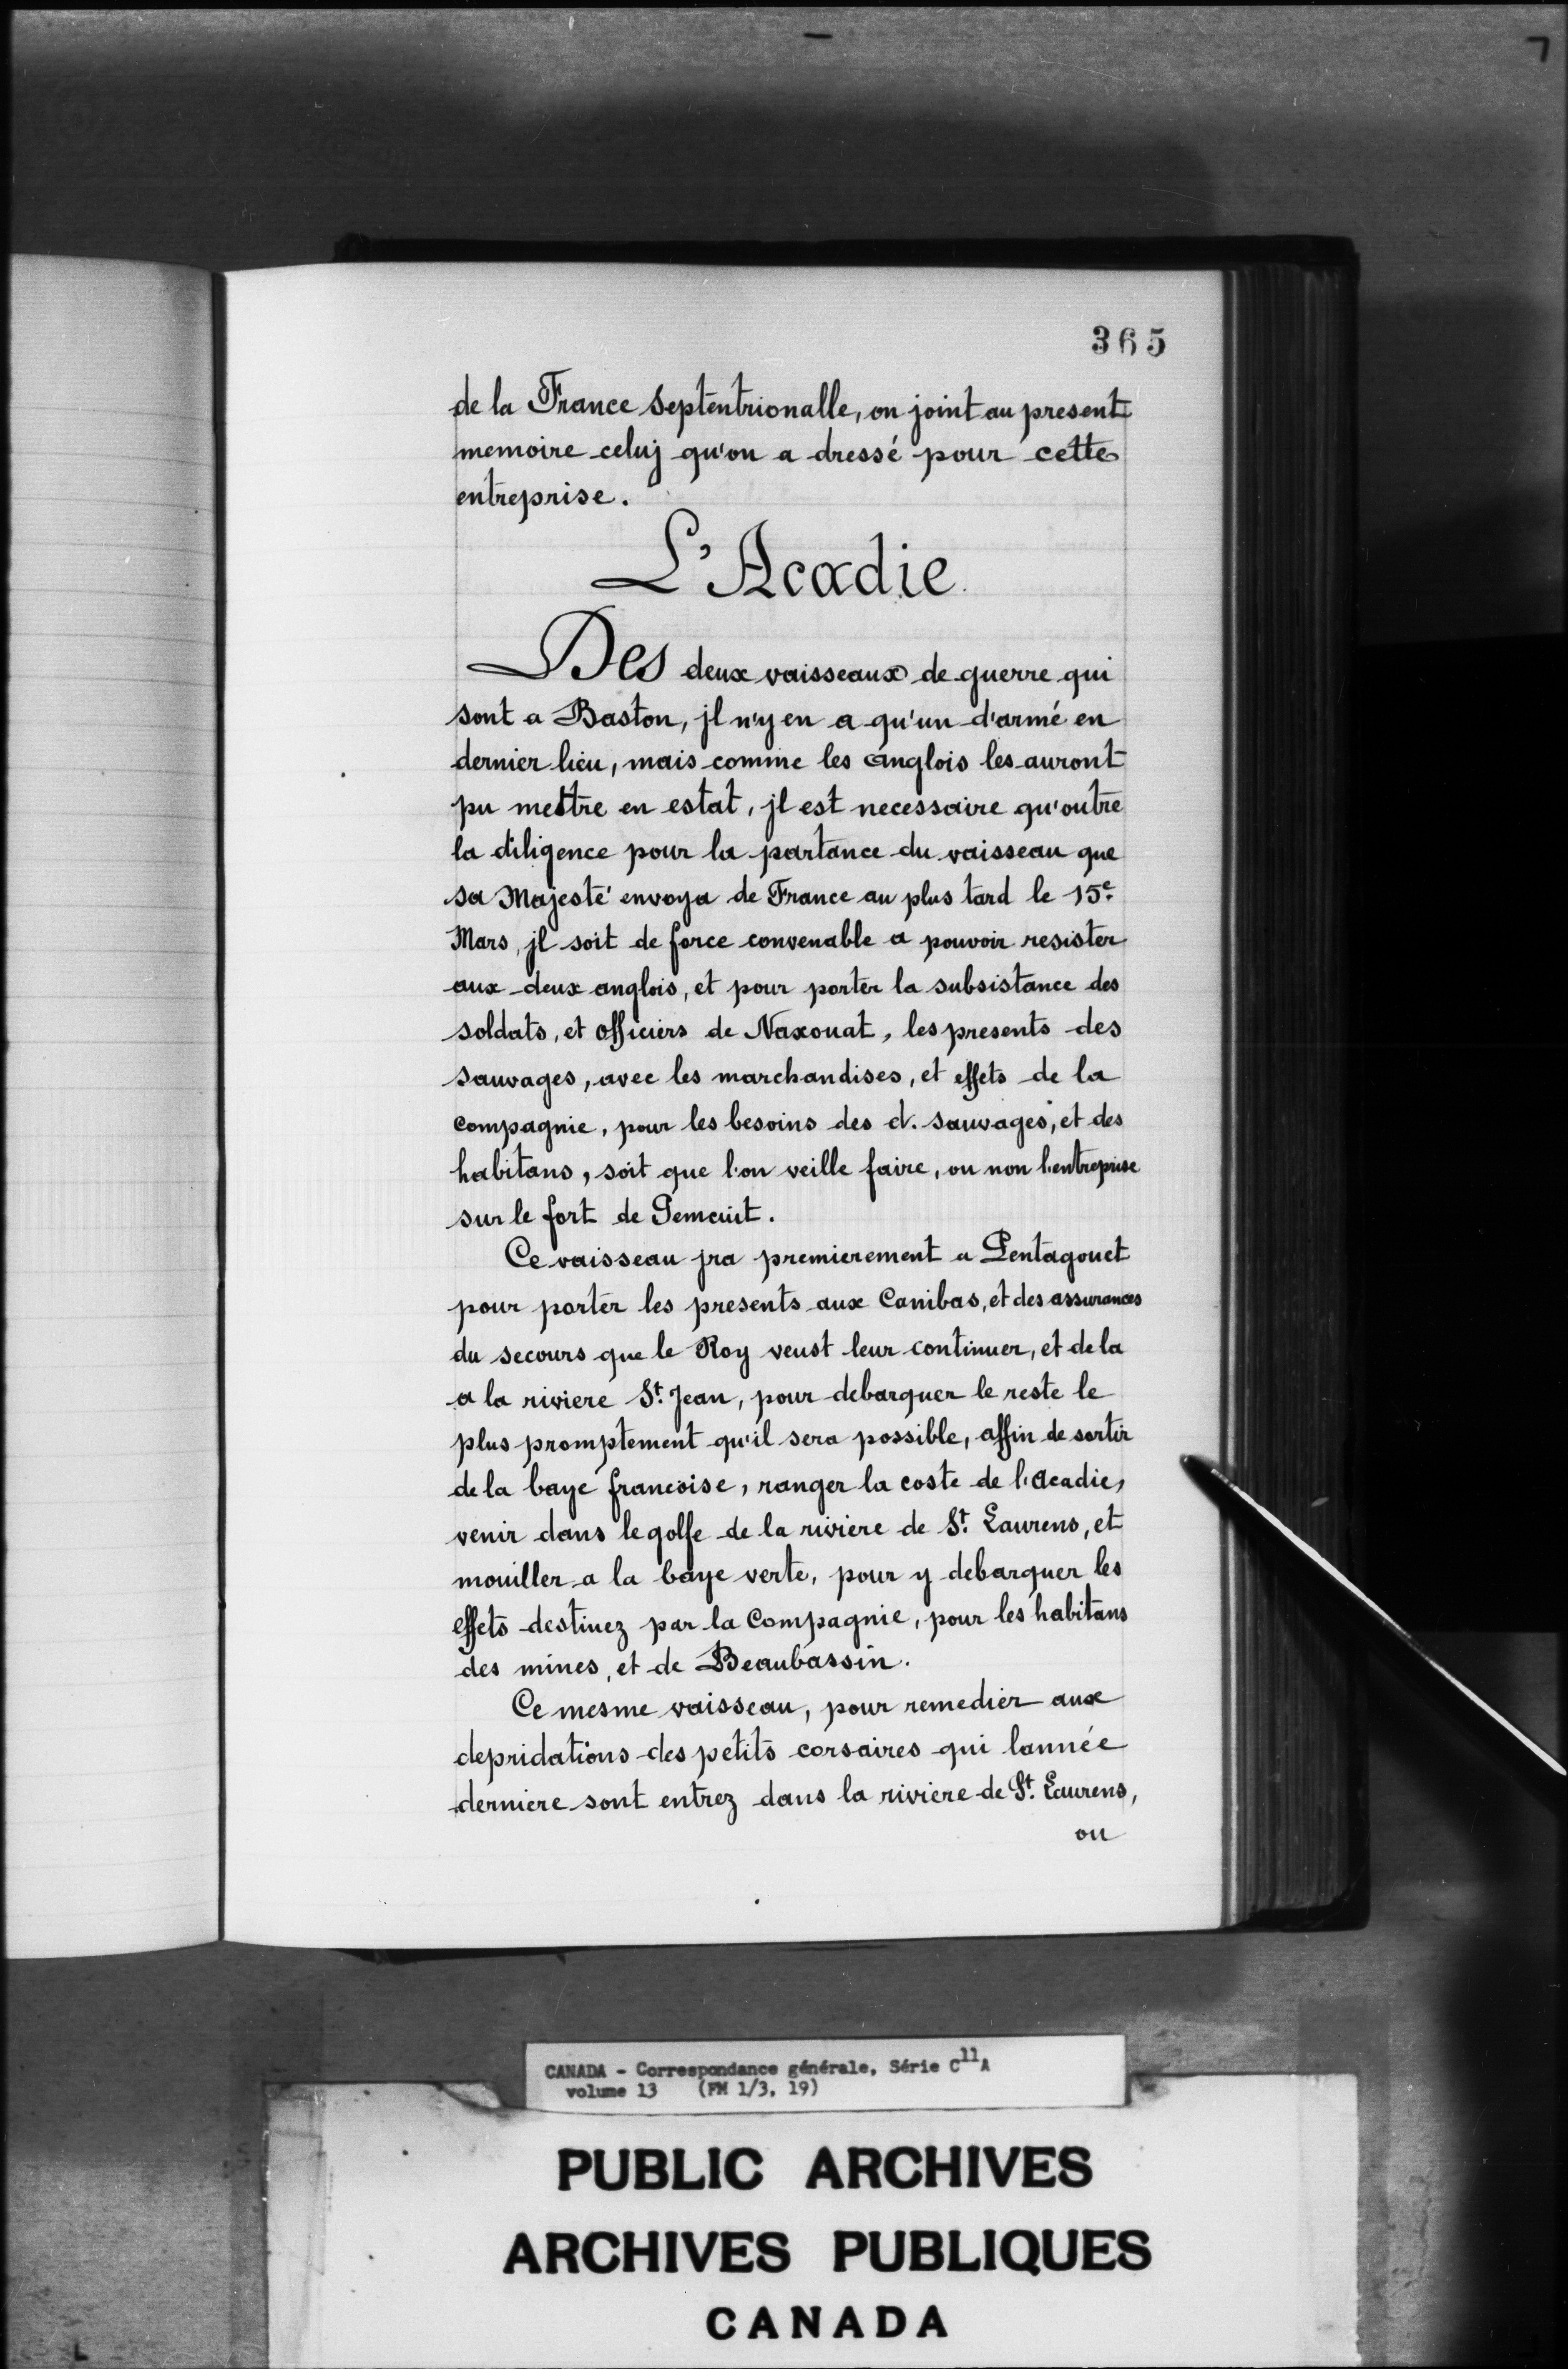 365
de la France Septentrionalle, on joint au present
memoire celuj qu'on a dressé pour cette
entreprise.
L'Acadie
Des deux vaisseaux de guerre qui
sont a Baston, jl n'y en a qu'un d'armé en
dernier lieu, mais comme les anglois les auront
pu mettre en estat, jl est necessaire qu'outre
la diligence pour la partance du vaisseau que
sa Majesté envoya de France au plus tard le 15e
Mars, jl soit de force convenable a pouvoir resister
aux deux anglois, et pour porter la subsistance des
soldats, et officiers de Naxouat, les presents des
sauvages, avec les marchandises, et effets de la
compagnie, pour les besoins des d. sauvages, et des
habitans, soit que l'on veille faire, ou non l'entreprise
sur le fort de Pemcuit.
Ce vaisseau jra premierement a Pentagouet
pour porter les presents aux Canibas, et des assurances
du secours que le Roy veust leur continuer, et de la
a la riviere St. Jean, pour debarquer le reste le
plus promptement qu'il sera possible, affin de sortir
de la baye francoise, ranger la coste de l'Acadie,
venir dans le golfe de la riviere de St. Laurens, et
mouiller a la baye verte, pour y debarquer les
effets destinez par la Compagnie, pour les habitans
des mines, et de Beaubassin.
Ce mesme vaisseau, pour remedier aux
depridations des petits corsaires qui lannée
derniere sont entrez dans la riviere de St. Laurens,
ou
CANADA - Correspondance générale, Série C11A
volume 13 (FM 1/3, 19)
PUBLIC ARCHIVES
ARCHIVES PUBLIQUES
CANADA